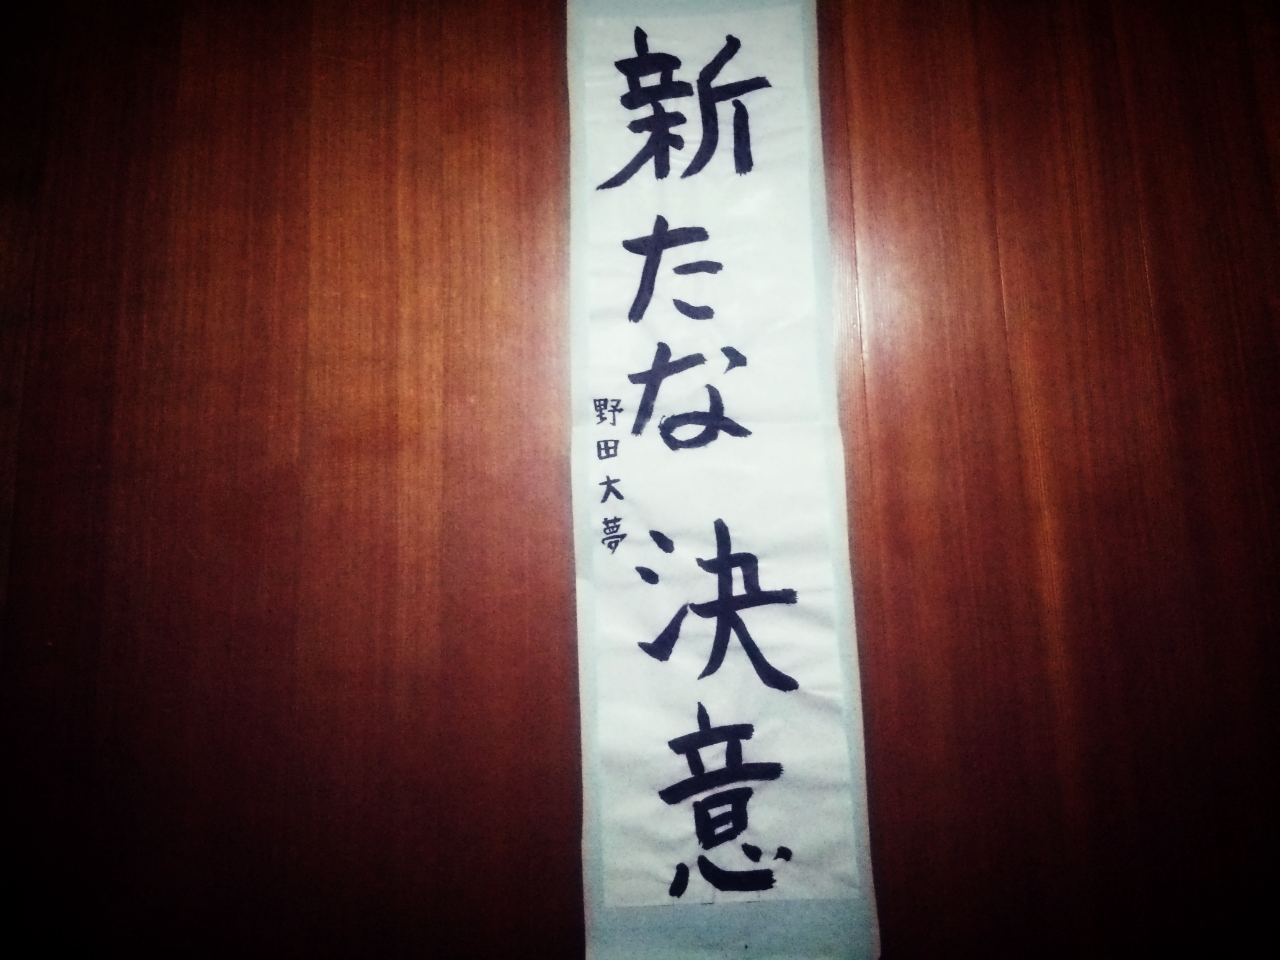 新たな決意
野田大夢